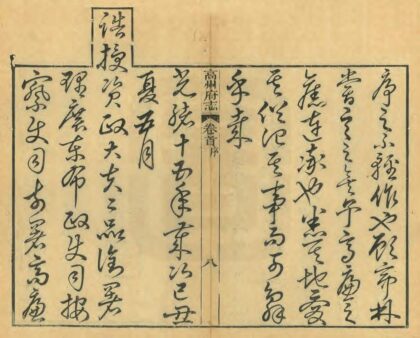 序之不輕作也顧亭林
嘗言之矣予高廉之
舊也其地愛
其俗記其事而可辭
乎哉
高州府志 卷首 序 八
光緒十五年歲次己丑
夏五月
誥授資政大夫二品銜署
理廣東布政使司按
察使司前署高廉